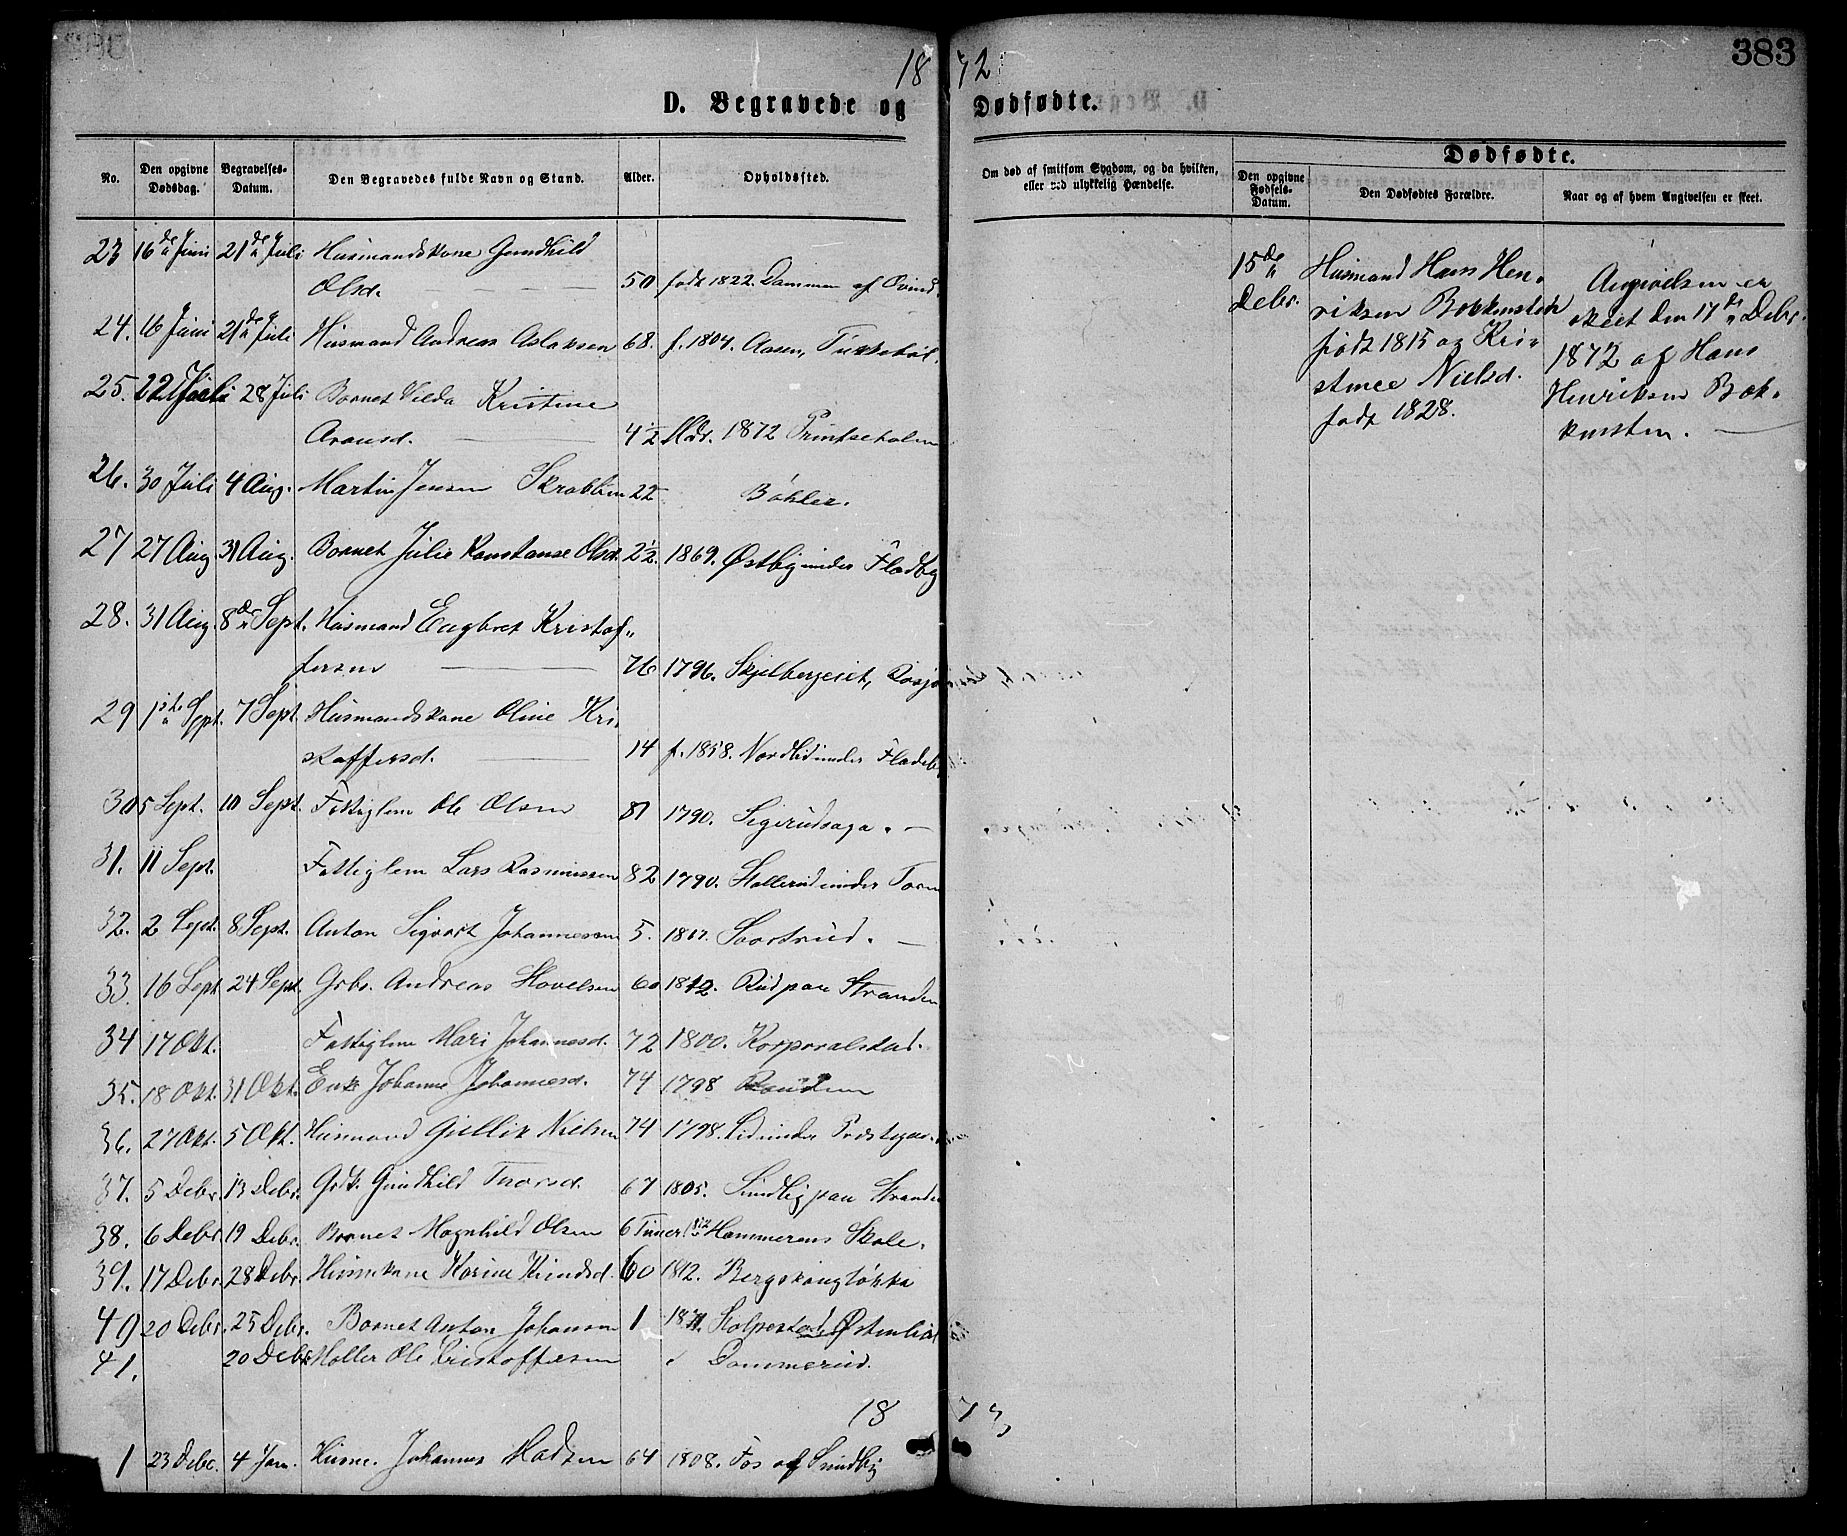 18 72
383
D. Begravede og Dødfødte.
No.
Den opgivne Dødsdag.
Begravelses-Datum.
Den Begravedes fulde Navn og Stand.
Alder.
Opholdssted.
Om død af smitsom Sygdom, og da hvilken, eller ved ulykkelig Hændelse.
Dødfødte.
Den opgivne Fødsels-Datum.
Den Dødfødtes Forældre.
Naar og af hvem Angivelsen er skeet.
23 16de Juni 21de Juli Husmandskone Gundhild
Olsd. 50 født 1822. Dammen af
24. 16 Juni 21de Juli Husmand Andreas Aslaksen 68. f. 1804. Aasen,
25. 22 Juli 28 Juli Barnet Hilda Kristine
Aronsd. 4½ Mdr. 1872 Printseholm
26. 30 Juli 4 Aug. Martin Jensen 22 Bøhler.
27 27 Aug 31 Aug. Barnet Julie Konstanse Olsd. 2½. 1869. Østbig under Fladbg
28. 31 Aug. 8de Sept. Husmand Engbret Kristof-
fersen 76 1796. Skjelbergeiet,
29 1ste Sept. 7 Sept. Husmandskone Oline Kri-
stoffersd. 14 f. 1858. Nordlid under Fladeb
30 5 Sept. 10 Sept. Fattiglem Ole Olsen 81 1790. Sigerudsaga.
31. 11 Sept. Fattiglem Lars Rasmussen 82 1790. under
32. 2 Sept. 8 Sept. Anton Sigvart Johannesen 5.
33. 16 Sept 24 Sept. Grbr. Andreas Hovelsen 60 1812. Rud paa Stranden
34 17 Okt. Fattiglem Mari Johannesd. 72 1800. Korporalstad.
35. 18 Okt. 31 Okt. Enke Johanne Johannesd. 74 1798
36. 27 Okt. 5 Okt. Husmand Gullik Nielsen 74 1798. Lid under
37. 5 Debr. 13 Debr. Grdk. Gundhild Thorsd. 67 1805. Sundbig paa Strande
38. 6 Debr. 19 Debr. Barnet Magnhild Olsen 6 Timer. 1872 Hammerens Skole.
39. 17 Debr. 28 Debr. Karine Knudsd. 60 1812. Bergskaugløkka
40 20 Debr. 25 Debr. Barnet Anton Johansen 1 1871. Stolpestad, Østenlid
41. 20 Debr. Møller Ole Cristoffersen Dammerud.
18 73
1 23 Debr. 4 Jan. Husm. Johannes Madsen 64 1808. Fos af Sundbig
15de
Debr.
Husmand Hans Hen-
riksen Bokkensten
født 1815 og Kri-
stence Nielsd.
født 1828.
Angivelsen er
skeet den 17de Debr.
1872 af Hans
Henriksen Bok-
kensten.